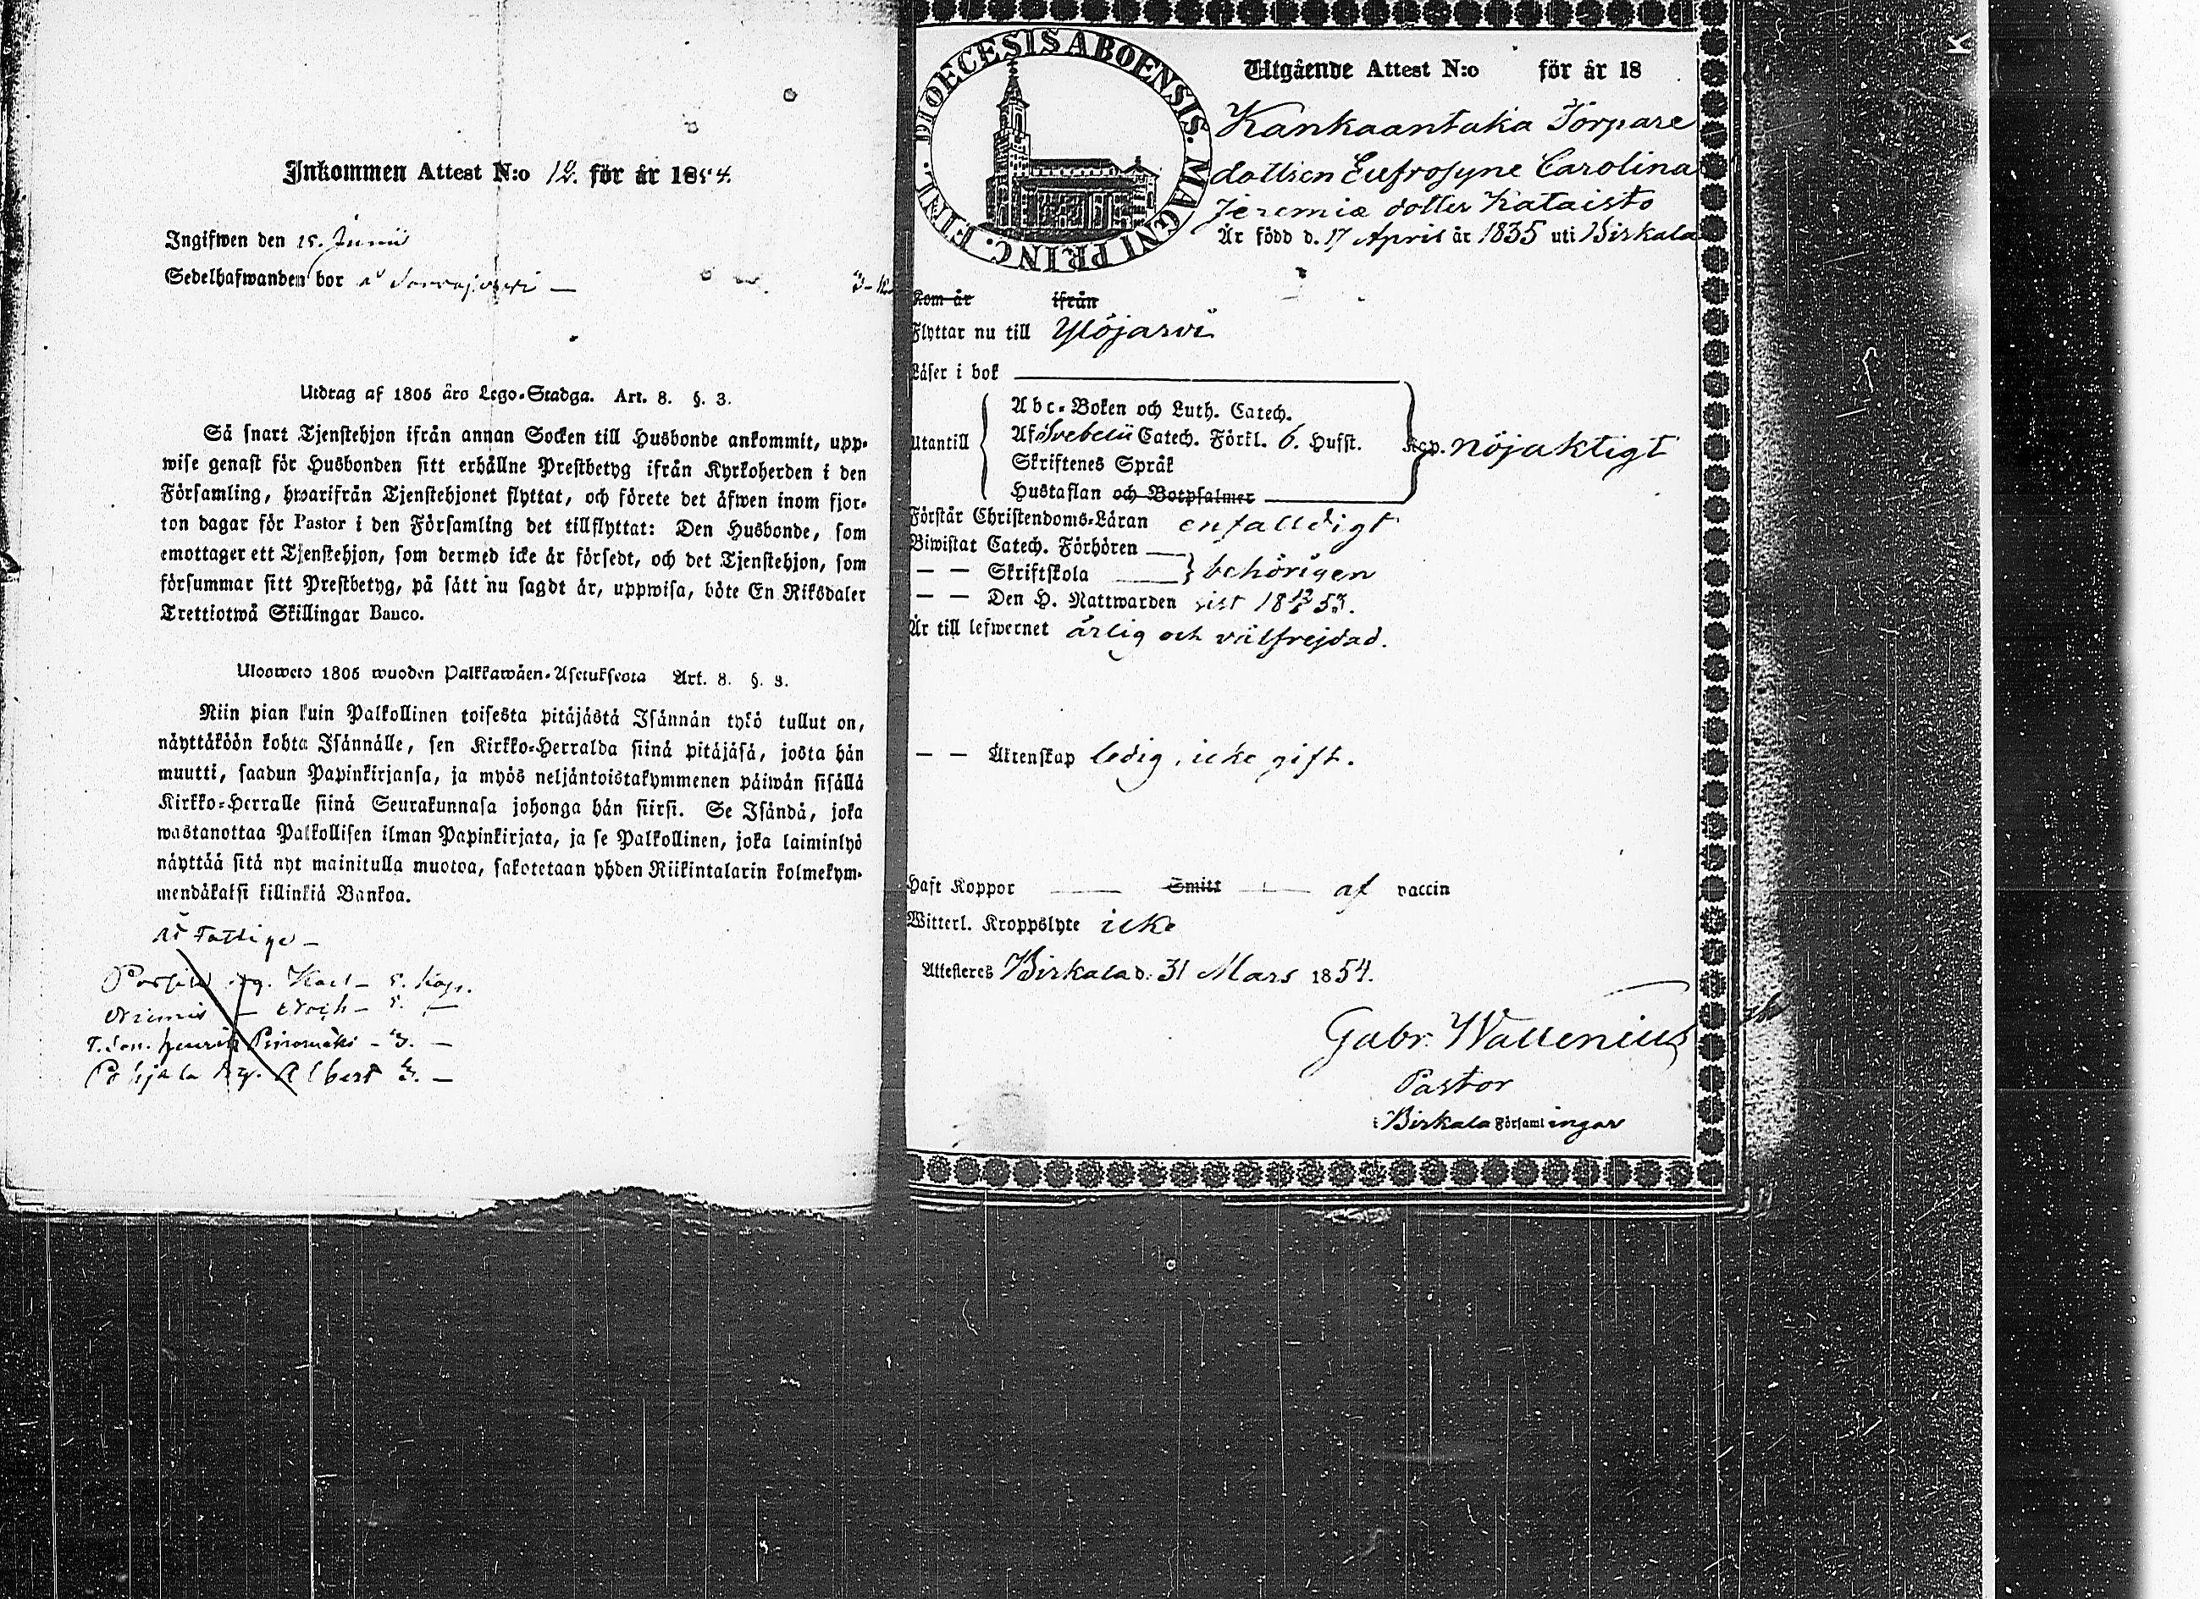 Inkommen Attest N:o 12. för år 1854.
Ingifwen den 15. Junii
Sedelhafwanden bor å
Utdrag af 1805 års Lego-Stadga. Art. 8. §. 3.
Så snart Tjenstehjon ifrån annan Socken till Husbonde ankommit, upp-
wise genast för Husbonden sitt erhållne Prestbetyg ifrån Kyrkoherden i den
Församling, hwarifrån Tjenstehjonet flyttat, och förete det äfwen inom fjor-
ton dagar för Pastor i den Församling det tillflyttat: Den Husbonde, som
emottager ett Tjenstehjon, som dermed icke är försedt, och det Tjenstehjon, som
försummar sitt Prestbetyg, på sätt nu sagdt är, uppwisa, böte En Riksdaler
Trettiotwå Skillingar Banco.
Ulosweto 1805 wuoden Palkkawäen-Asetuksesta Art. 8. §. 3.
Niin pian kuin Palkollinen toisesta pitäjästä Isännän tykö tullut on,
näyttäköön kohta Isännälle, sen Kirkko-Herralda siinä pitäjäsä, josta hän
muutti, saadun Papinkirjansa, ja myös neljäntoistakymmenen päiwän sisällä
Kirkko-Herralle siinä Seurakunnasa johonga hän siirsi. Se Isändä, joka
wastanottaa Palkollisen ilman Papinkirjata, ja se Palkollinen, joka laiminlyö
näyttää sitä nyt mainitulla muotoa, sakotetaan yhden Riikintalarin kolmekym-
mendäkaksi killinkiä Bankoa.
Karl
Henrik
Pohjala Albert 3. –
DIOECESIS ABOENSIS. MAGNI PRINC. FINL.
Utgående Attest N:o för år 18
Kankaantaka Torpare
dottren Eufrosyne Carolina
Jeremiæ dotter Kataisto
Är född d. 17 April år 1835 uti Birkala
Kom år ifrån
Flyttar nu till Ylöjärvi
Läser i bok
Abc-Boken och Luth. Catech.
Utantill Af Svebelii Catech. Förkl. 6. Hufst. Kap. nöjaktigt
Skriftenes Språk
Hustaflan och Botpsalmer
Förstår Christendoms-Läran enfalldigt
Biwistat Catech. Förhören
— — Skriftskola behörigen
— — Den H. Nattwarden sist 18 53.
Är till lefwernet ärlig och välfrejdad.
— — Äktenskap ledig, icke gift.
Haft Koppor Smitt af vaccin
Witterl. Kroppslyte icke
Attesteres Birkala d. 31 Mars 1854.
Gabr. Wallenius
Pastor
i Birkala Församlingar
K